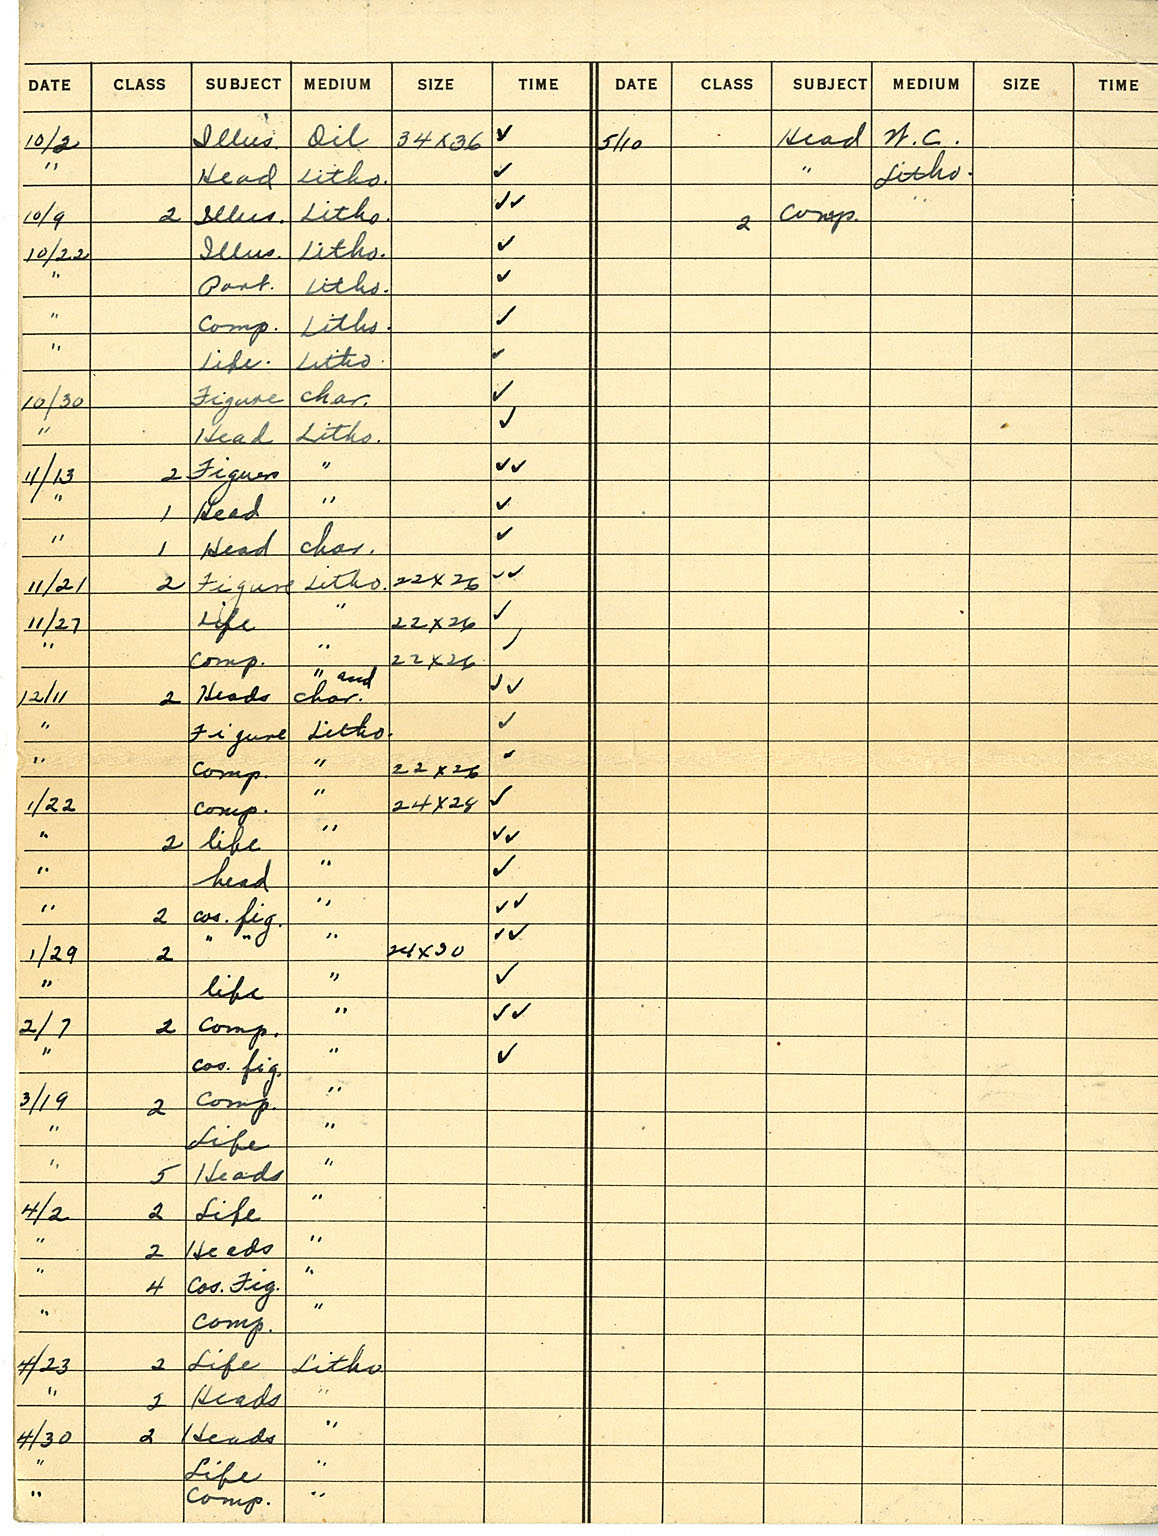 DATE CLASS SUBJECT MEDIUM SIZE TIME DATE CLASS SUBJECT MEDIUM SIZE TIME
10/2 Illus. Oil 34 X 36 ✓ 5/10 Head W.C.
" Head Litho. ✓ " Litho.
10/9 2 Illus. Litho. ✓✓ 2 Comp. "
10/22 Illus. Litho. ✓
" Port. Litho. ✓
" Comp. Litho. ✓
" Life. Litho. ✓
10/30 Figure Char. ✓
" Head Litho. ✓
11/13 2 Figures " ✓✓
" 1 Head " ✓
" 1 Head Char. ✓
11/21 2 Figure Litho. 22 X 26 ✓✓
11/27 Life " 22 X 26 ✓
" Comp. " 22 X 26 ✓
12/11 2 Heads " and char. ✓✓
" Figure Litho. ✓
" Comp. " 22 X 26 ✓
1/22 Comp. " 24 X 28 ✓
" 2 life " ✓✓
" head " ✓
" 2 cos. fig. " ✓✓
1/29 2 " " " 24 X 30 ✓✓
" life " ✓
2/7 2 Comp. " ✓✓
" cos. fig. " ✓
3/19 2 Comp. "
" Life "
" 5 Heads "
4/2 2 Life "
" 2 Heads "
" 4 Cos. Fig. "
" Comp. "
4/23 2 Life Litho
" 2 Heads "
4/30 2 Heads "
" Life "
" Comp. "